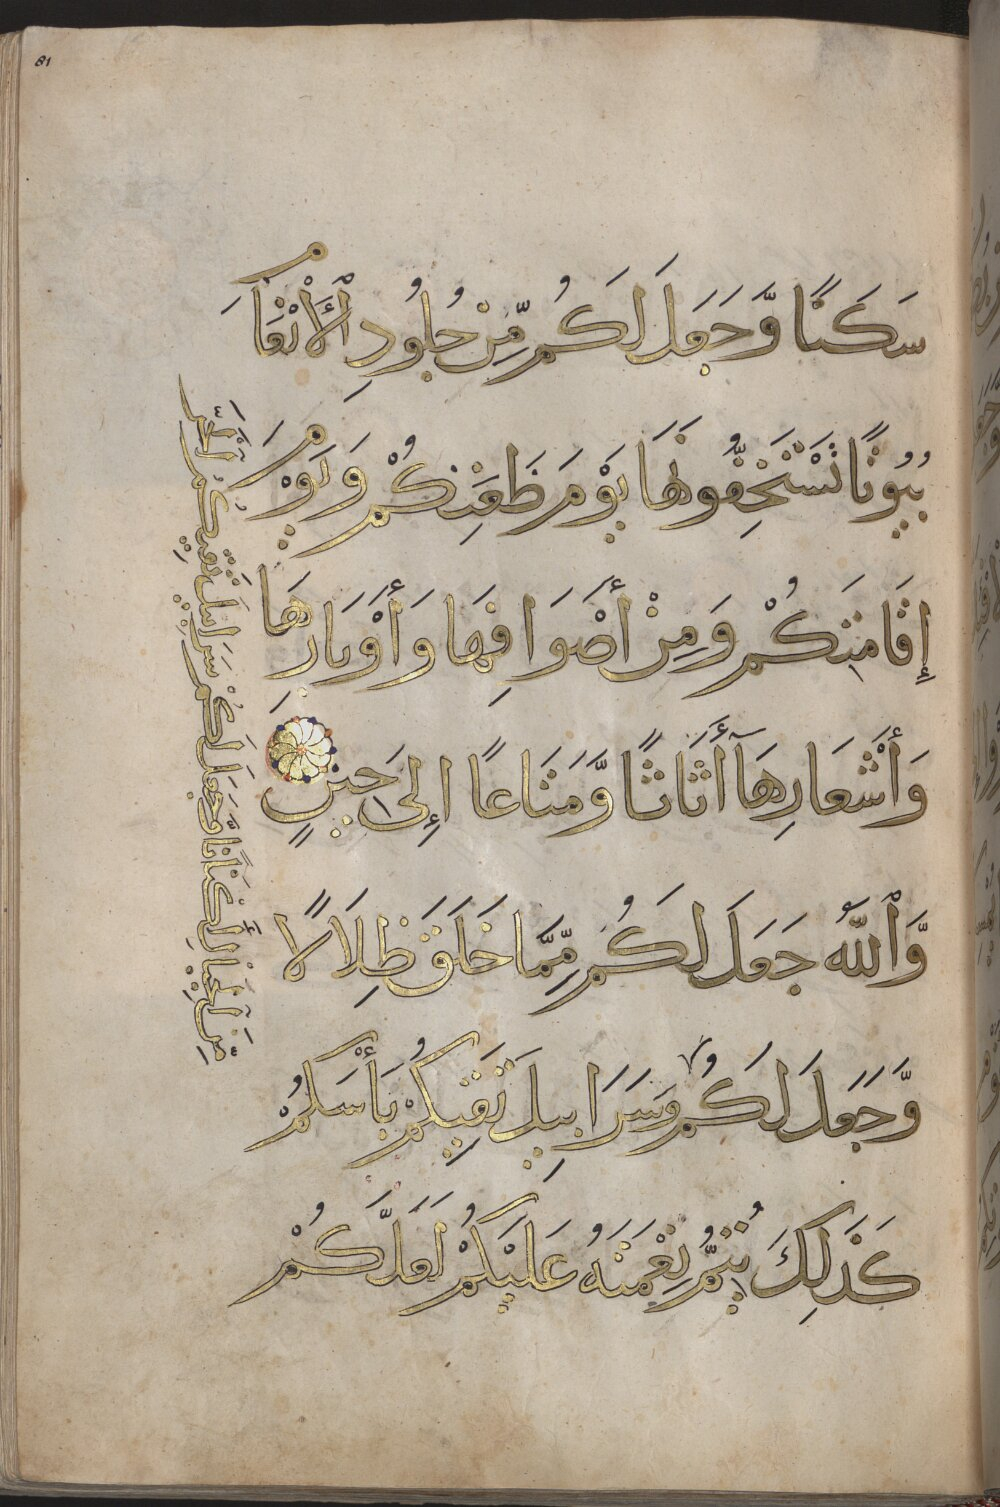 81
سَكَنًا وَّجَعَلَ لَكُم مِّنْ جُلُودِ ٱلْأَنْعَامِ
بُيُوتًا تَسْتَخِفُّونَهَا يَوْمَ ظَعَنِكُمْ وَيَوْمَ
إِقَامَتِكُمْ وَمِنْ أَصْوَافِهَا وَأَوْبَارِهَا
وَأَشْعَارِهَآ أَثَاثًا وَّمَتَاعًا إِلَى حِينٍ
وَّٱللَّهُ جَعَلَ لَكُم مِّمَّا خَلَقَ ظِلَالًا
وَّجَعَلَ لَكُم وَسَرَابِيلَ تَقِيكُمْ بَأْسَكُمْ
كَذَلِكَ يُتِمُّ نِعْمَتَهُ عَلَيْكُمْ لَعَلَّكُمْ
مِّنَ ٱلْجِبَالِ أَكْنَانًا وَّجَعَلَ لَكُمْ سَرَابِيلَ تَقِيكُمُ ٱلْحَرَّ